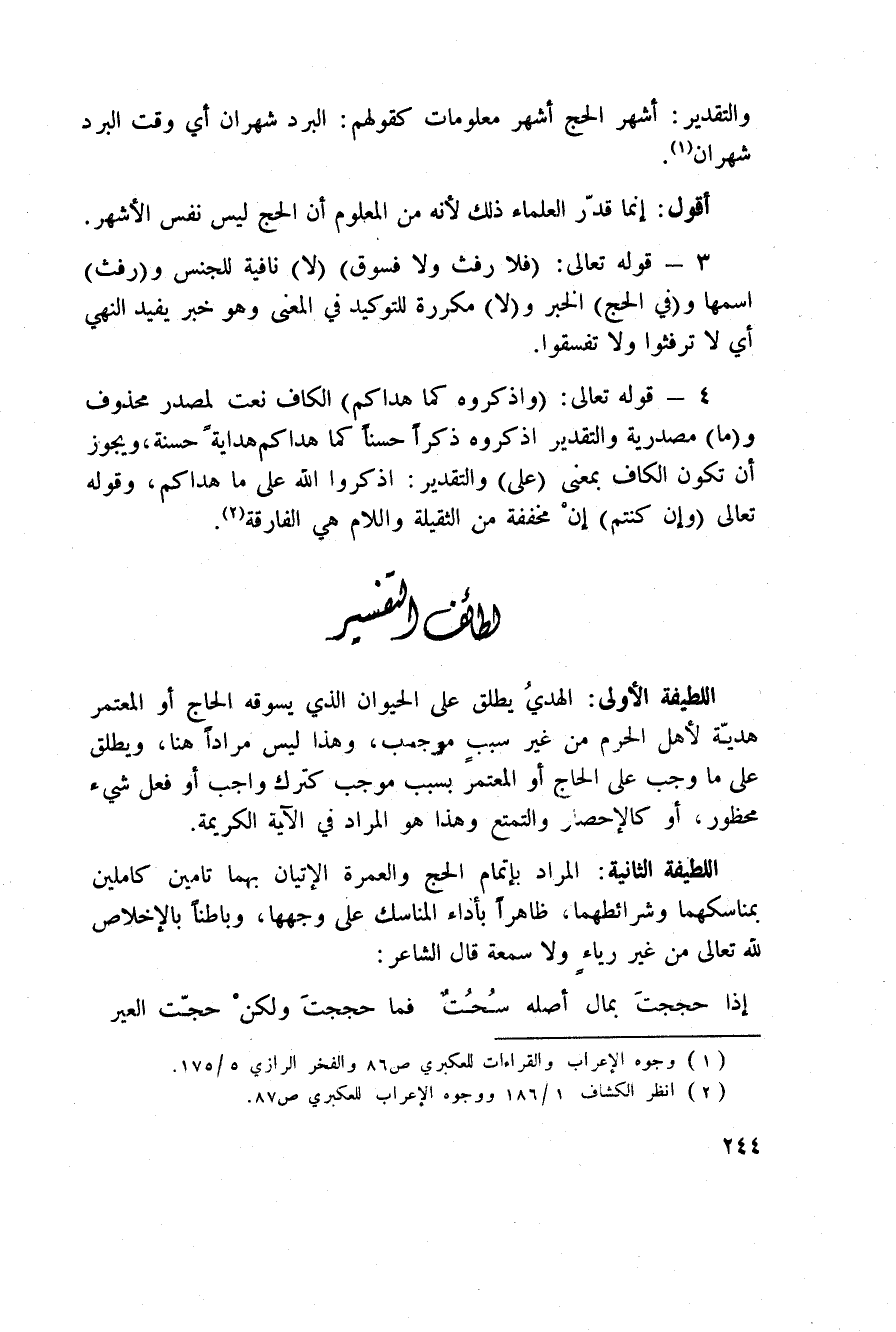 والتقدير : أشهر الحج أشهر معلومات كقولهم : البرد شهران أي وقت البرد
شهران(١).
أقول : إنما قدّر العلماء ذلك لأنه من المعلوم أن الحج ليس نفس الأشهر .
٣ – قوله تعالى : (فلا رفث ولا فسوق) (لا) نافية للجنس و(رفث)
اسمها و(في الحج) الخبر و(لا) مكررة للتوكيد في المعنى وهو خبر يفيد النهي
أي لا ترفثوا ولا تفسقوا.
٤ – قوله تعالى : (واذكروه كما هداكم) الكاف نعت لمصدر محذوف
و(ما) مصدرية والتقدير اذكروه ذكراً حسناً كما هداكم هداية ً حسنة ، ويجوز
أن تكون الكاف بمعنى (على) والتقدير : اذكروا الله على ما هداكم ، وقوله
تعالى (وإن كنتم) إنْ مخففة من الثقيلة واللام هي الفارقة(٢).
لطائف التفسير
اللطيفة الأولى : الهديُ يطلق على الحيوان الذي يسوقه الحاج أو المعتمر
هديّة لأهل الحرم من غير سببٍ موجب ، وهذا ليس مراداً هنا ، ويطلق
على ما وجب على الحاج أو المعتمر بسبب موجب كترك واجب أو فعل شيء
محظور ، أو كالإحصار والتمتع وهذا هو المراد في الآية الكريمة.
اللطيفة الثانية : المراد بإتمام الحج والعمرة الإتيان بهما تامين كاملين
بمناسكهما وشرائطهما ، ظاهراً بأداء المناسك على وجهها ، وباطناً بالإخلاص
لله تعالى من غير رياءٍ ولا سمعة قال الشاعر :
إذا حججتَ بمال أصله سُحُتٌ فما حججتَ ولكنْ حجّت العير
( ١ ) وجوه الإعراب والقراءات للعكبري ص٨٦ والفخر الرازي ٥ /١٧٥.
( ٢ ) انظر الكشاف ١ /١٨٦ ووجوه الإعراب للعكبري ص٨٧.
٢٤٤